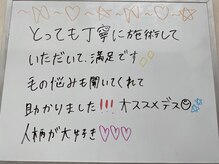 とっても丁寧に施術して
いただいて、満足です
毛の悩みも聞いてくれて
助かりました!!! オススメデス
人柄が大好き♡♡♡